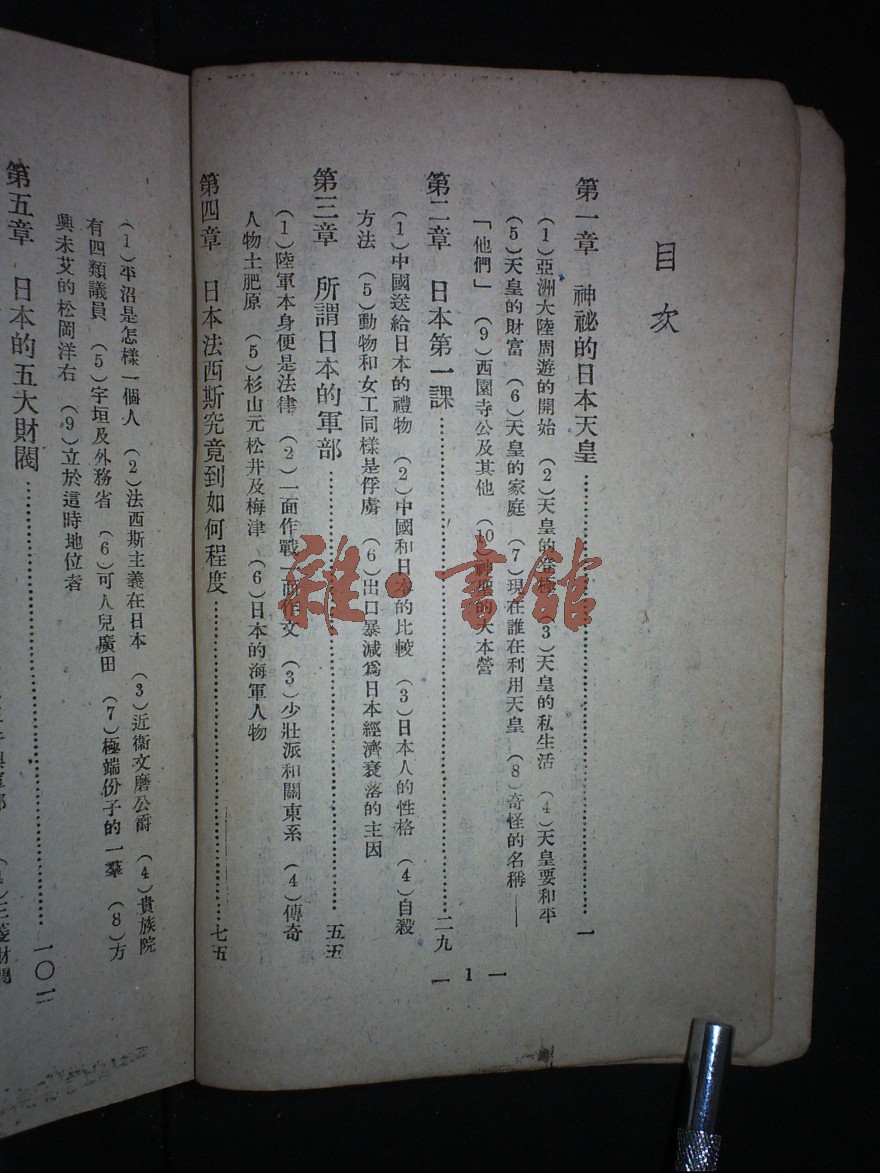 目次
第一章 神祕的日本天皇……一
(1)亞洲大陸周遊的開始 (2)天皇的 (3)天皇的私生活 (4)天皇要和平
(5)天皇的財富 (6)天皇的家庭 (7)現在誰在利用天皇 (8)奇怪的名稱——
「他們」 (9)西園寺公及其他 (10)神聖的大本營
第二章 日本第一課……二九
(1)中國送給日本的禮物 (2)中國和日本的比較 (3)日本人的性格 (4)自殺
方法 (5)動物和女工同樣是俘虜 (6)出口暴減爲日本經濟衰落的主因
第三章 所謂日本的軍部……五五
(1)陸軍本身便是法律 (2)一面作戰一面作文 (3)少壯派和關東系 (4)傳奇
人物土肥原 (5)杉山元松井及梅津 (6)日本的海軍人物
第四章 日本法西斯究竟到如何程度……七五
—1—
(1)平沼是怎樣一個人 (2)法西斯主義在日本 (3)近衞文磨公爵 (4)貴族院
有四類議員 (5)宇垣及外務省 (6)可人兒廣田 (7)極端份子的一羣 (8)方
興未艾的松岡洋右 (9)立於這時地位者
第五章 日本的五大財閥……一〇二
雜·書館